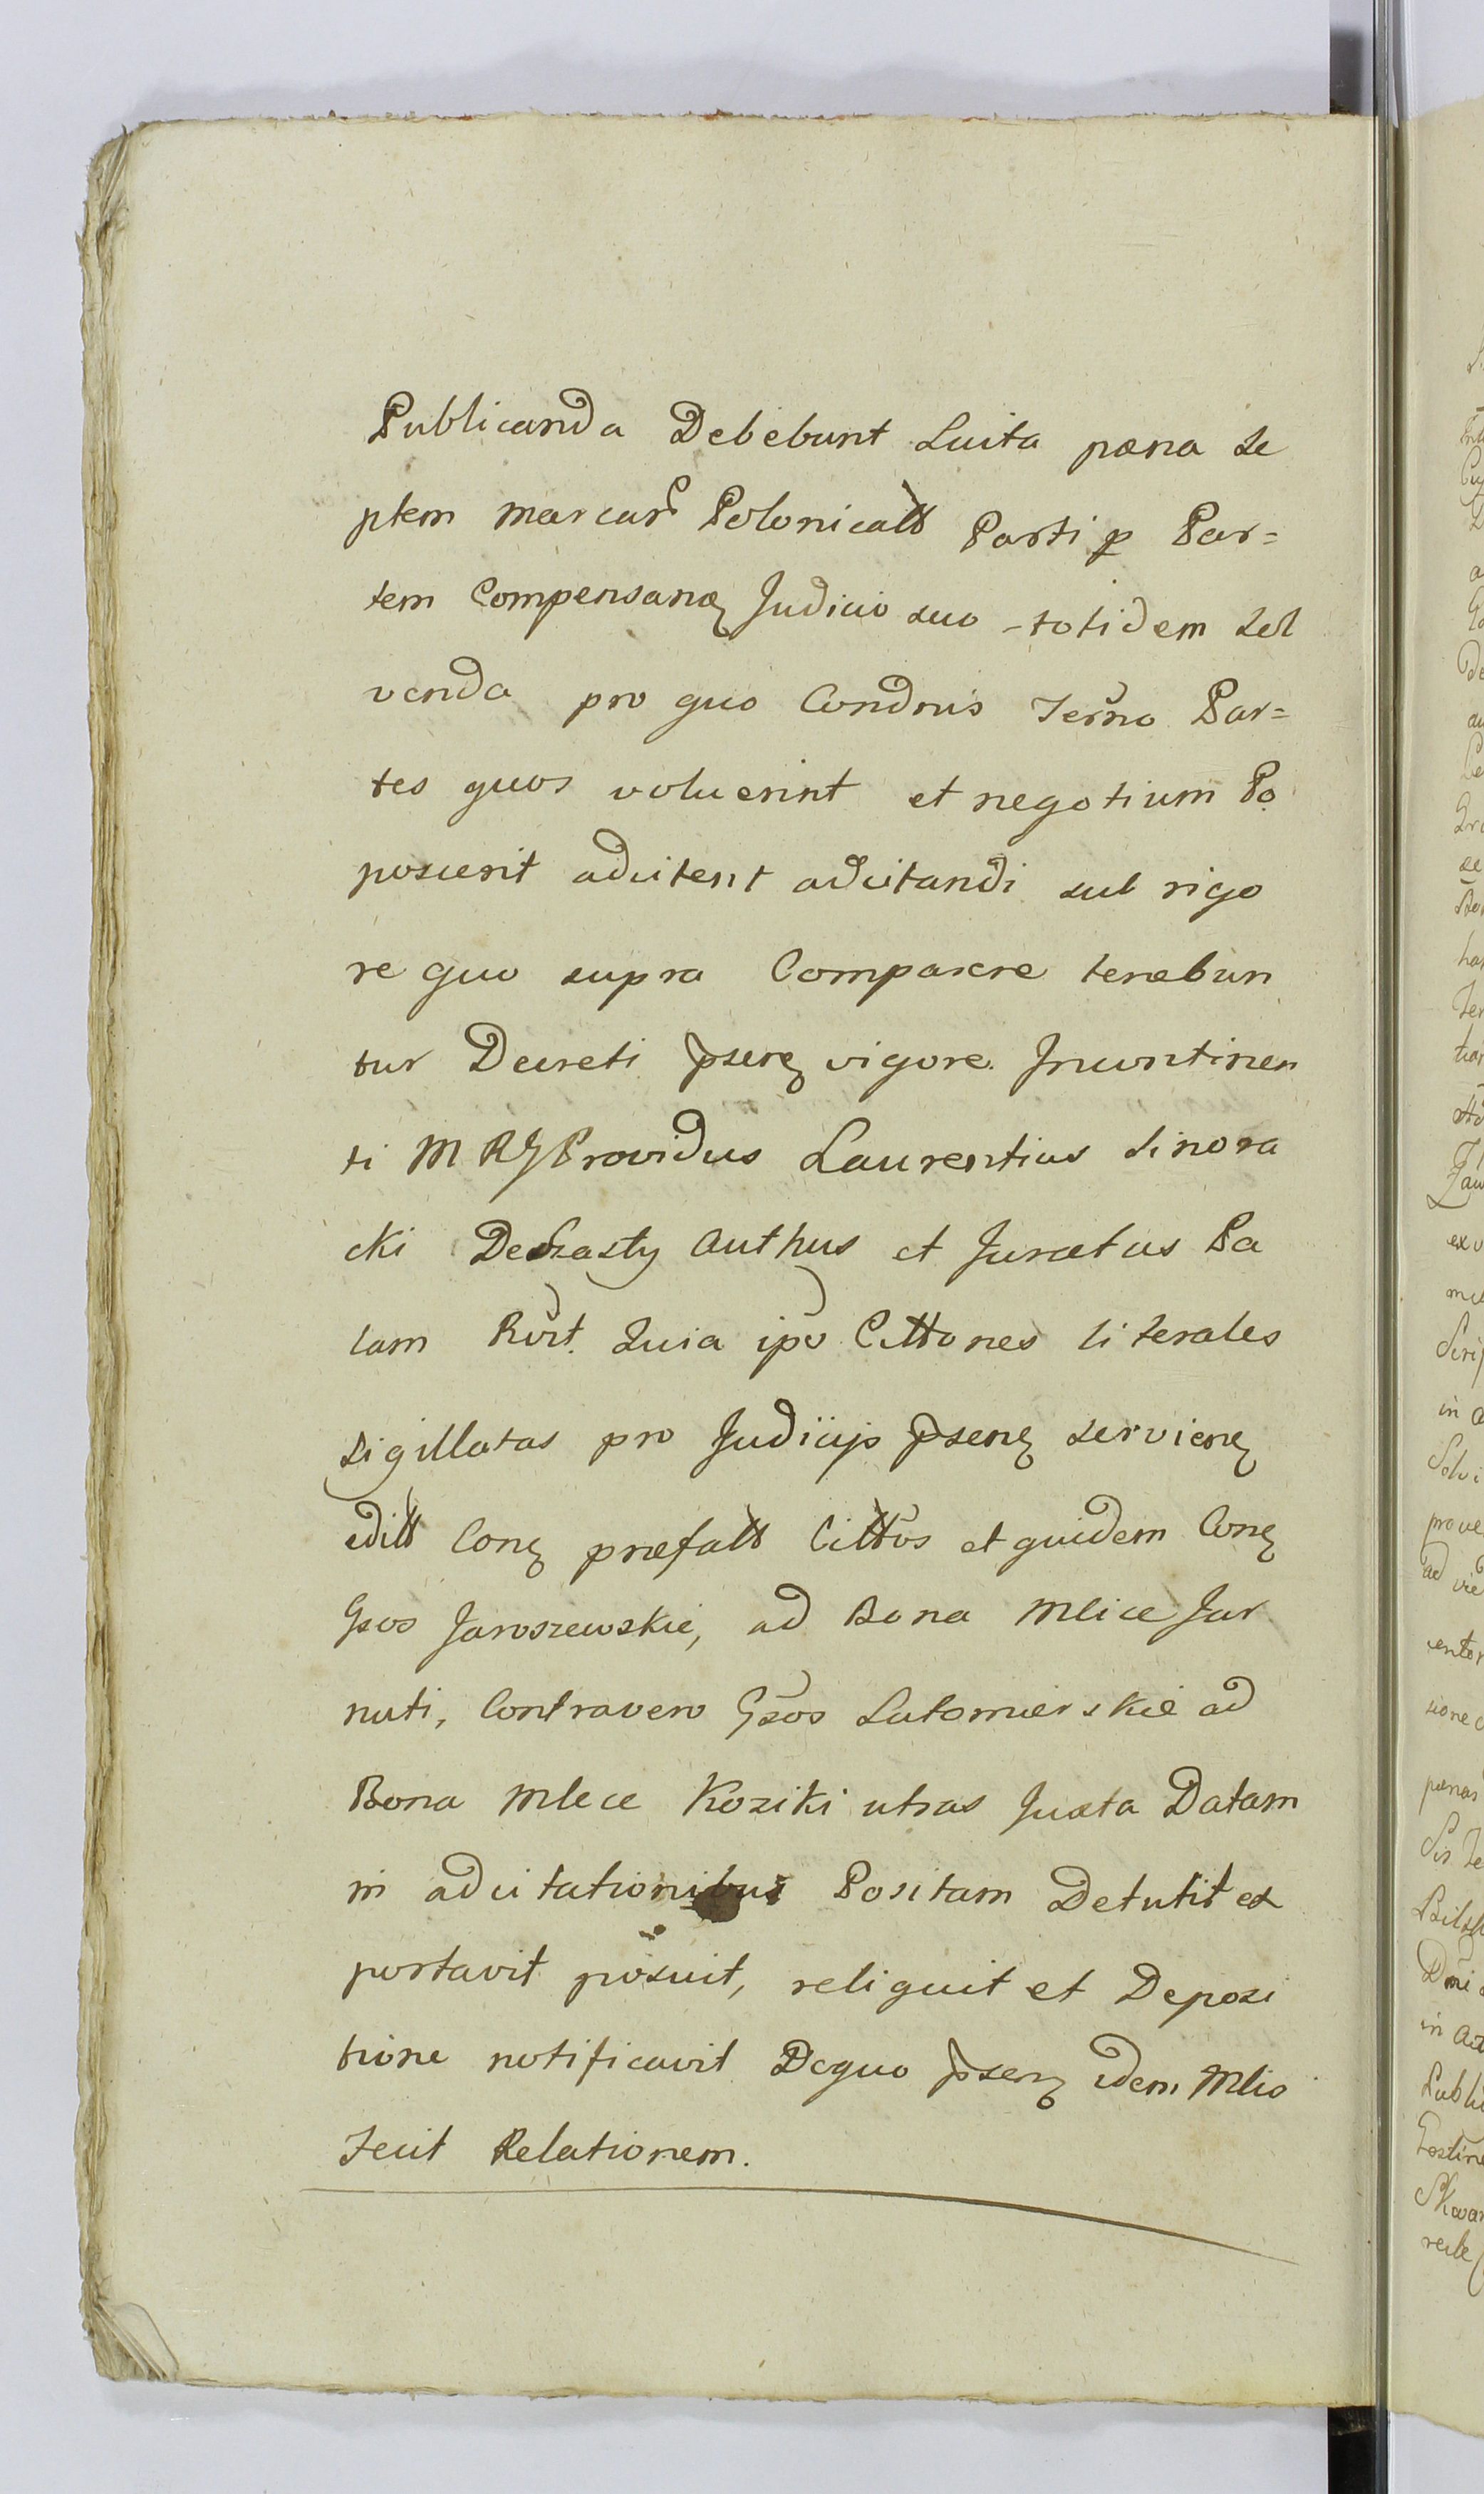 Publicanda Debebunt Luita pæna se
ptem marcar Polonicalt Parti p Par=
tem Compensanę Judicio suo totidem sol
venda pro quo Condnis Termo Par=
tes quos voluerint et negotium Po
poscerit adcitent adcitandi sub rigo
re quo supra Comparere tenebun
tur Decreti psenę vigore Incontinen
ti M R G Providus Laurentius Sinora
cki Derzasty Authus et Juratus Pa
lam Rvit. Quia ipo Cittones literales
Sigillatas pro Judicijs psenę servienę
editt Conę præfatt Cittos et quidem Conę
Gsos Jaroszewskie, ad Bona Mlice Jar
nuti, Contravero Gsos Lutomierskie ad
Bona Mlece Koziki utras Juxta Datam
in adcitationibus Positam Detulit et
portavit posuit, reliquit et Deposi
tione notificavit Dequo psenę idem Mlis
Fecit Relationem.